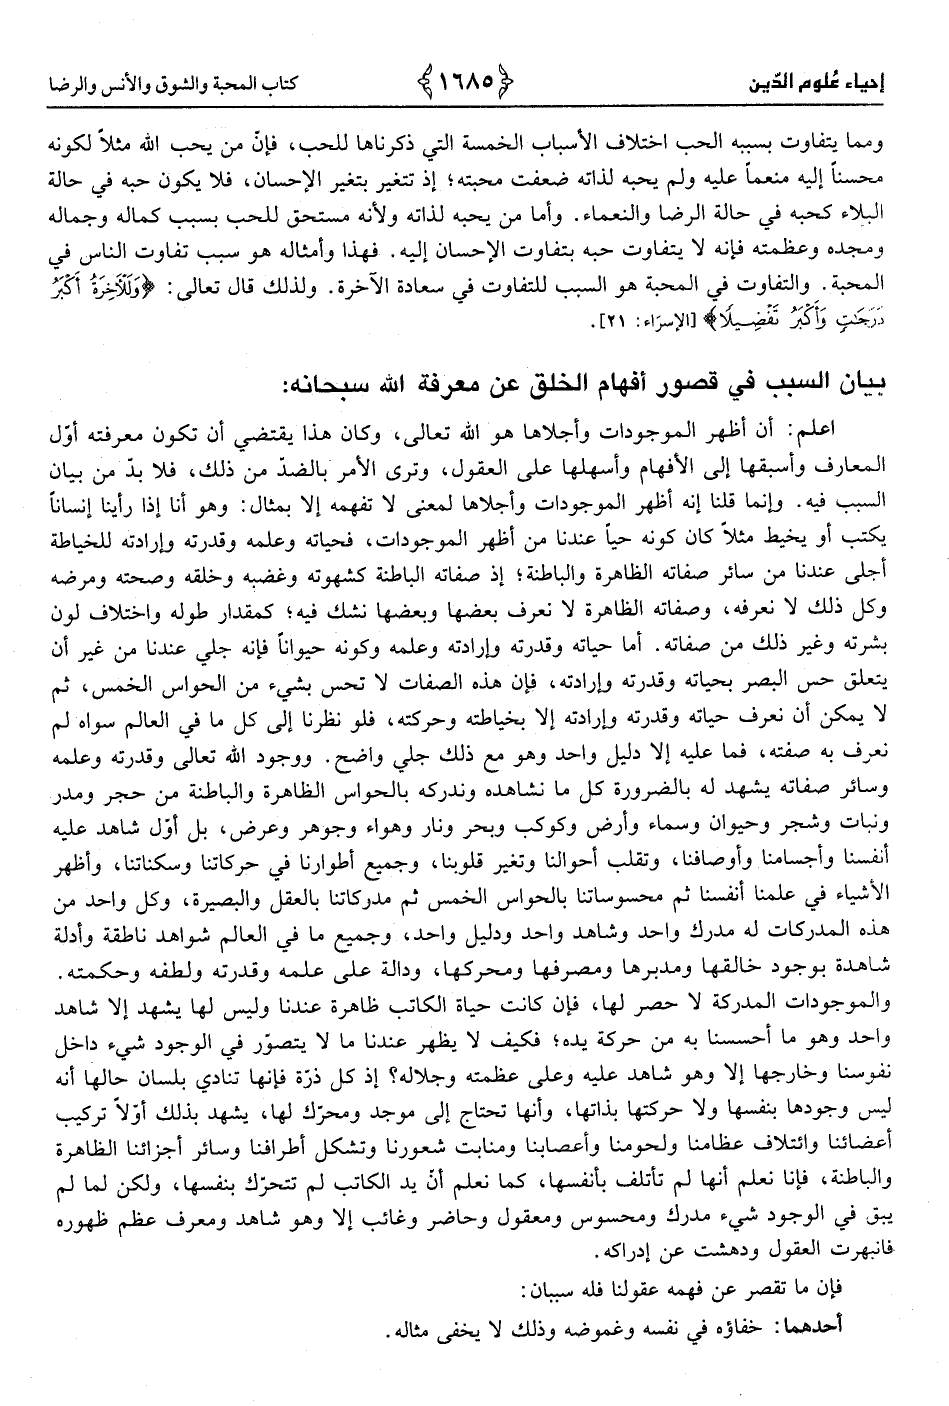 إحياء عُلوم الدّين ﴿١٦٨٥﴾ كتاب المحبة والشوق والأنس والرضا
ومما يتفاوت بسببه الحب اختلاف الأسباب الخمسة التي ذكرناها للحب، فإنّ من يحب الله مثلاً لكونه
محسناً إليه منعماً عليه ولم يحبه لذاته ضعفت محبته؛ إذ تتغير بتغير الإحسان، فلا يكون حبه في حالة
البلاء كحبه في حالة الرضا والنعماء. وأما من يحبه لذاته ولأنه مستحق للحب بسبب كماله وجماله
ومجده وعظمته فإنه لا يتفاوت حبه بتفاوت الإحسان إليه. فهذا وأمثاله هو سبب تفاوت الناس في
المحبة. والتفاوت في المحبة هو السبب للتفاوت في سعادة الآخرة. ولذلك قال تعالى: ﴿وَلَلْآخِرَةُ أَكْبَرُ
دَرَجَٰتٍ وَأَكْبَرُ تَفْضِيلًا﴾ [الإسرَاء: ٢١].
بيان السبب في قصور أفهام الخلق عن معرفة الله سبحانه:
اعلم: أن أظهر الموجودات وأجلاها هو الله تعالى، وكان هذا يقتضي أن تكون معرفته أوّل
المعارف وأسبقها إلى الأفهام وأسهلها على العقول، وترى الأمر بالضدّ من ذلك، فلا بدّ من بيان
السبب فيه. وإنما قلنا إنه أظهر الموجودات وأجلاها لمعنى لا تفهمه إلا بمثال: وهو أنا إذا رأينا إنساناً
يكتب أو يخيط مثلاً كان كونه حياً عندنا من أظهر الموجودات، فحياته وعلمه وقدرته وإرادته للخياطة
أجلى عندنا من سائر صفاته الظاهرة والباطنة؛ إذ صفاته الباطنة كشهوته وغضبه وخلقه وصحته ومرضه
وكل ذلك لا نعرفه، وصفاته الظاهرة لا نعرف بعضها وبعضها نشك فيه؛ كمقدار طوله واختلاف لون
بشرته وغير ذلك من صفاته. أما حياته وقدرته وإرادته وعلمه وكونه حيواناً فإنه جلي عندنا من غير أن
يتعلق حس البصر بحياته وقدرته وإرادته، فإن هذه الصفات لا تحس بشيء من الحواس الخمس، ثم
لا يمكن أن نعرف حياته وقدرته وإرادته إلا بخياطته وحركته، فلو نظرنا إلى كل ما في العالم سواه لم
نعرف به صفته، فما عليه إلا دليل واحد وهو مع ذلك جلي واضح. ووجود الله تعالى وقدرته وعلمه
وسائر صفاته يشهد له بالضرورة كل ما نشاهده وندركه بالحواس الظاهرة والباطنة من حجر ومدر
ونبات وشجر وحيوان وسماء وأرض وكوكب وبحر ونار وهواء وجوهر وعرض، بل أوّل شاهد عليه
أنفسنا وأجسامنا وأوصافنا، وتقلب أحوالنا وتغير قلوبنا، وجميع أطوارنا في حركاتنا وسكناتنا، وأظهر
الأشياء في علمنا أنفسنا ثم محسوساتنا بالحواس الخمس ثم مدركاتنا بالعقل والبصيرة، وكل واحد من
هذه المدركات له مدرك واحد وشاهد واحد ودليل واحد، وجميع ما في العالم شواهد ناطقة وأدلة
شاهدة بوجود خالقها ومدبرها ومصرفها ومحركها، ودالة على علمه وقدرته ولطفه وحكمته.
والموجودات المدركة لا حصر لها، فإن كانت حياة الكاتب ظاهرة عندنا وليس لها يشهد إلا شاهد
واحد وهو ما أحسسنا به من حركة يده؛ فكيف لا يظهر عندنا ما لا يتصوّر في الوجود شيء داخل
نفوسنا وخارجها إلا وهو شاهد عليه وعلى عظمته وجلاله؟ إذ كل ذرّة فإنها تنادي بلسان حالها أنه
ليس وجودها بنفسها ولا حركتها بذاتها، وأنها تحتاج إلى موجد ومحرّك لها، يشهد بذلك أوّلاً تركيب
أعضائنا وائتلاف عظامنا ولحومنا وأعصابنا ومنابت شعورنا وتشكل أطرافنا وسائر أجزائنا الظاهرة
والباطنة، فإنا نعلم أنها لم تأتلف بأنفسها، كما نعلم أنّ يد الكاتب لم تتحرّك بنفسها، ولكن لما لم
يبق في الوجود شيء مدرك ومحسوس ومعقول وحاضر وغائب إلا وهو شاهد ومعرف عظم ظهوره
فانبهرت العقول ودهشت عن إدراكه.
فإن ما تقصر عن فهمه عقولنا فله سببان:
أحدهما: خفاؤه في نفسه وغموضه وذلك لا يخفى مثاله.